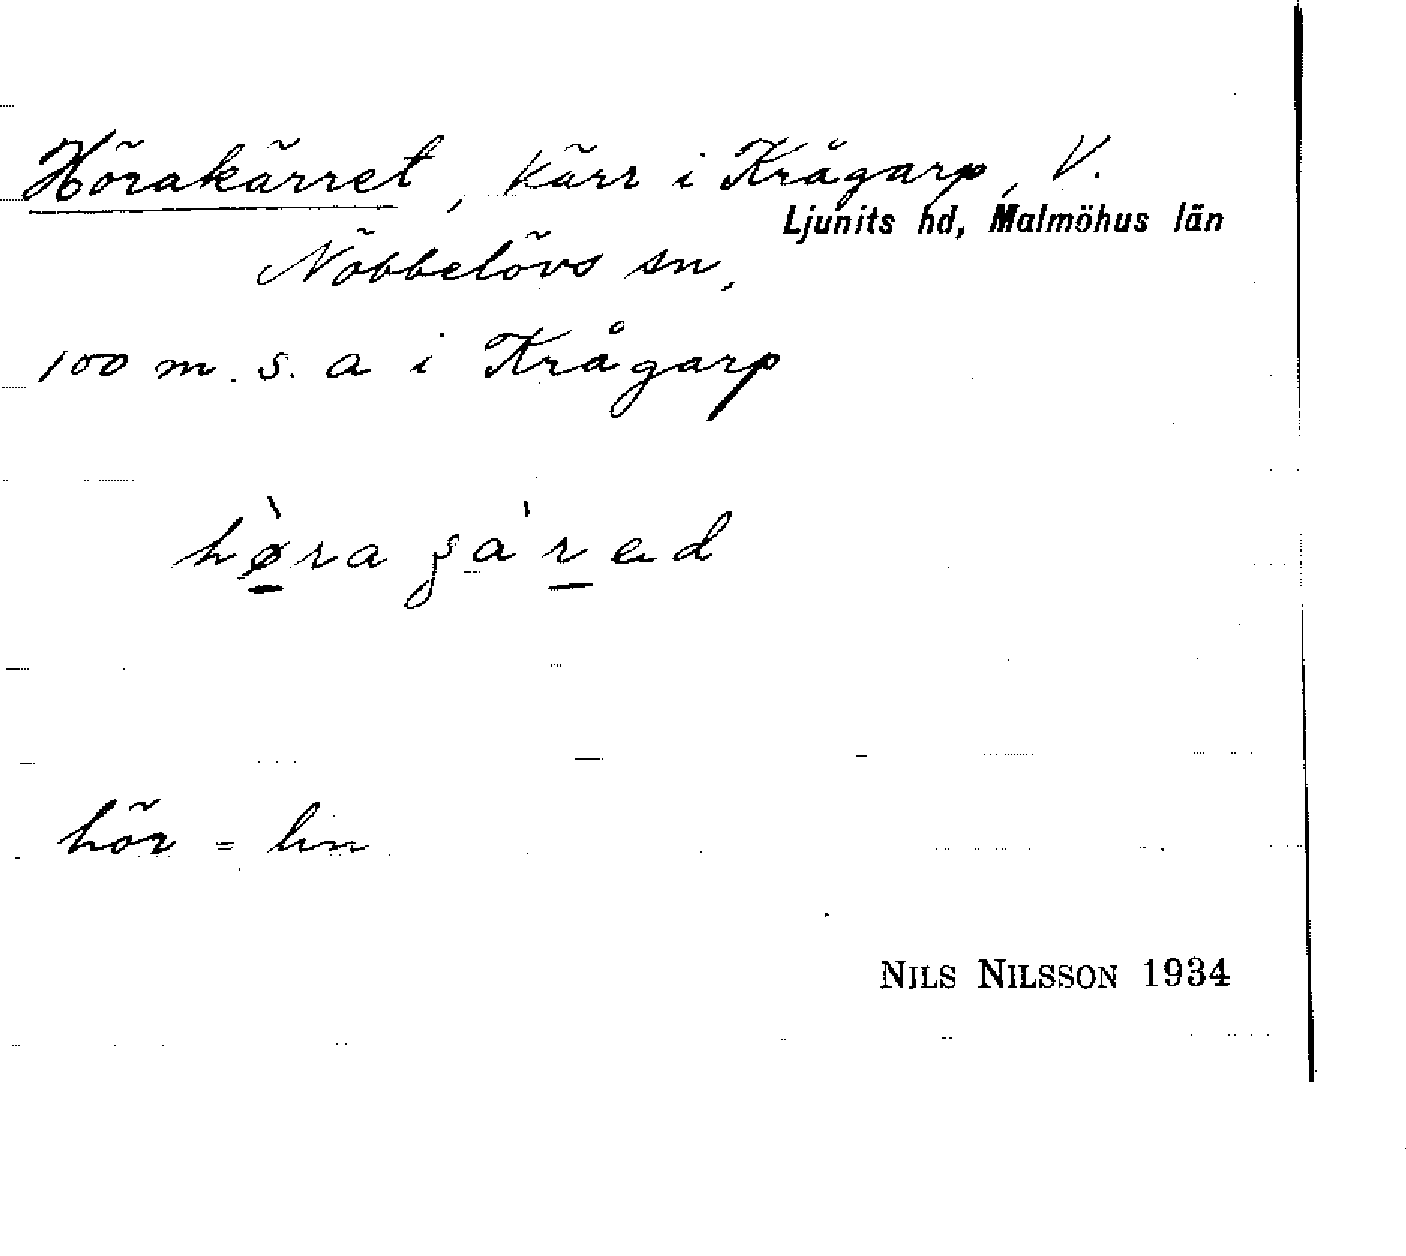 Hörakärret, kärr i Krågarp, V.
Ljunits hd, Malmöhus län
Nöbbelövs sn,
100 m. s. a i Krågarp
hø̀ra ga'rad
hör = lin
NILS NILSSON 1934